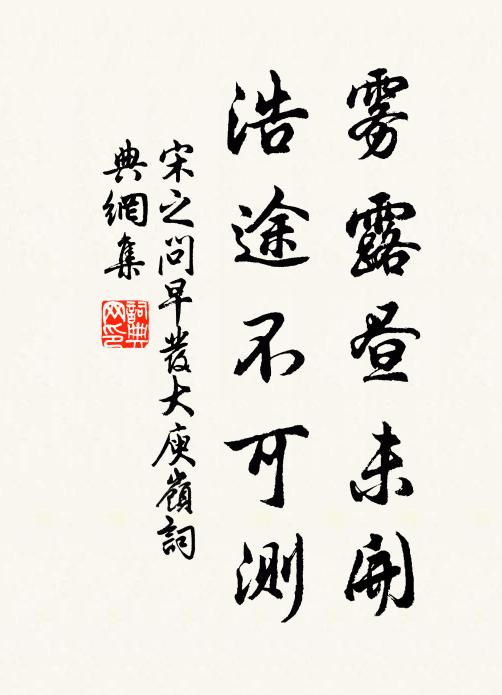 雾露昼未开
浩途不可測
宋之问早發大庾嶺詞
典網集
詞典网印